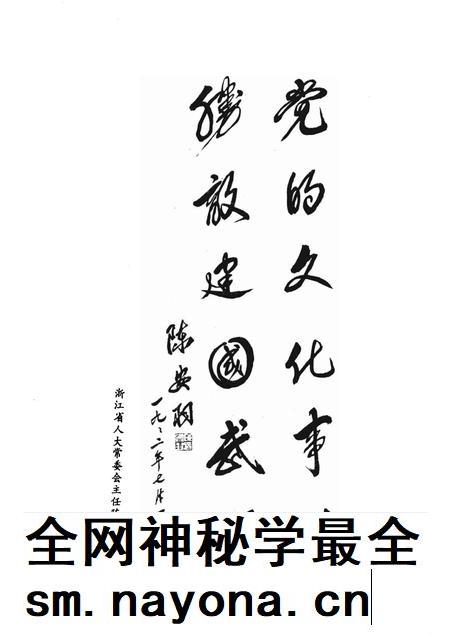 党的文化事
勝敵建國武
陈安羽
一九九二年七月
浙江省人大常委会主任
全网神秘学最全
sm.nayona.cn